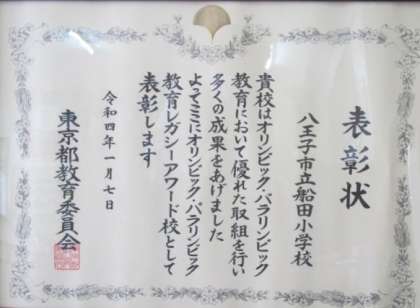 表彰状
八王子市立船田小学校
貴校はオリンピック・パラリンピック
教育において優れた取組を行い
多くの成果をあげました
よってここにオリンピック・パラリンピック
教育レガシーアワード校として
表彰します
令和四年一月七日
東京都教育委員会